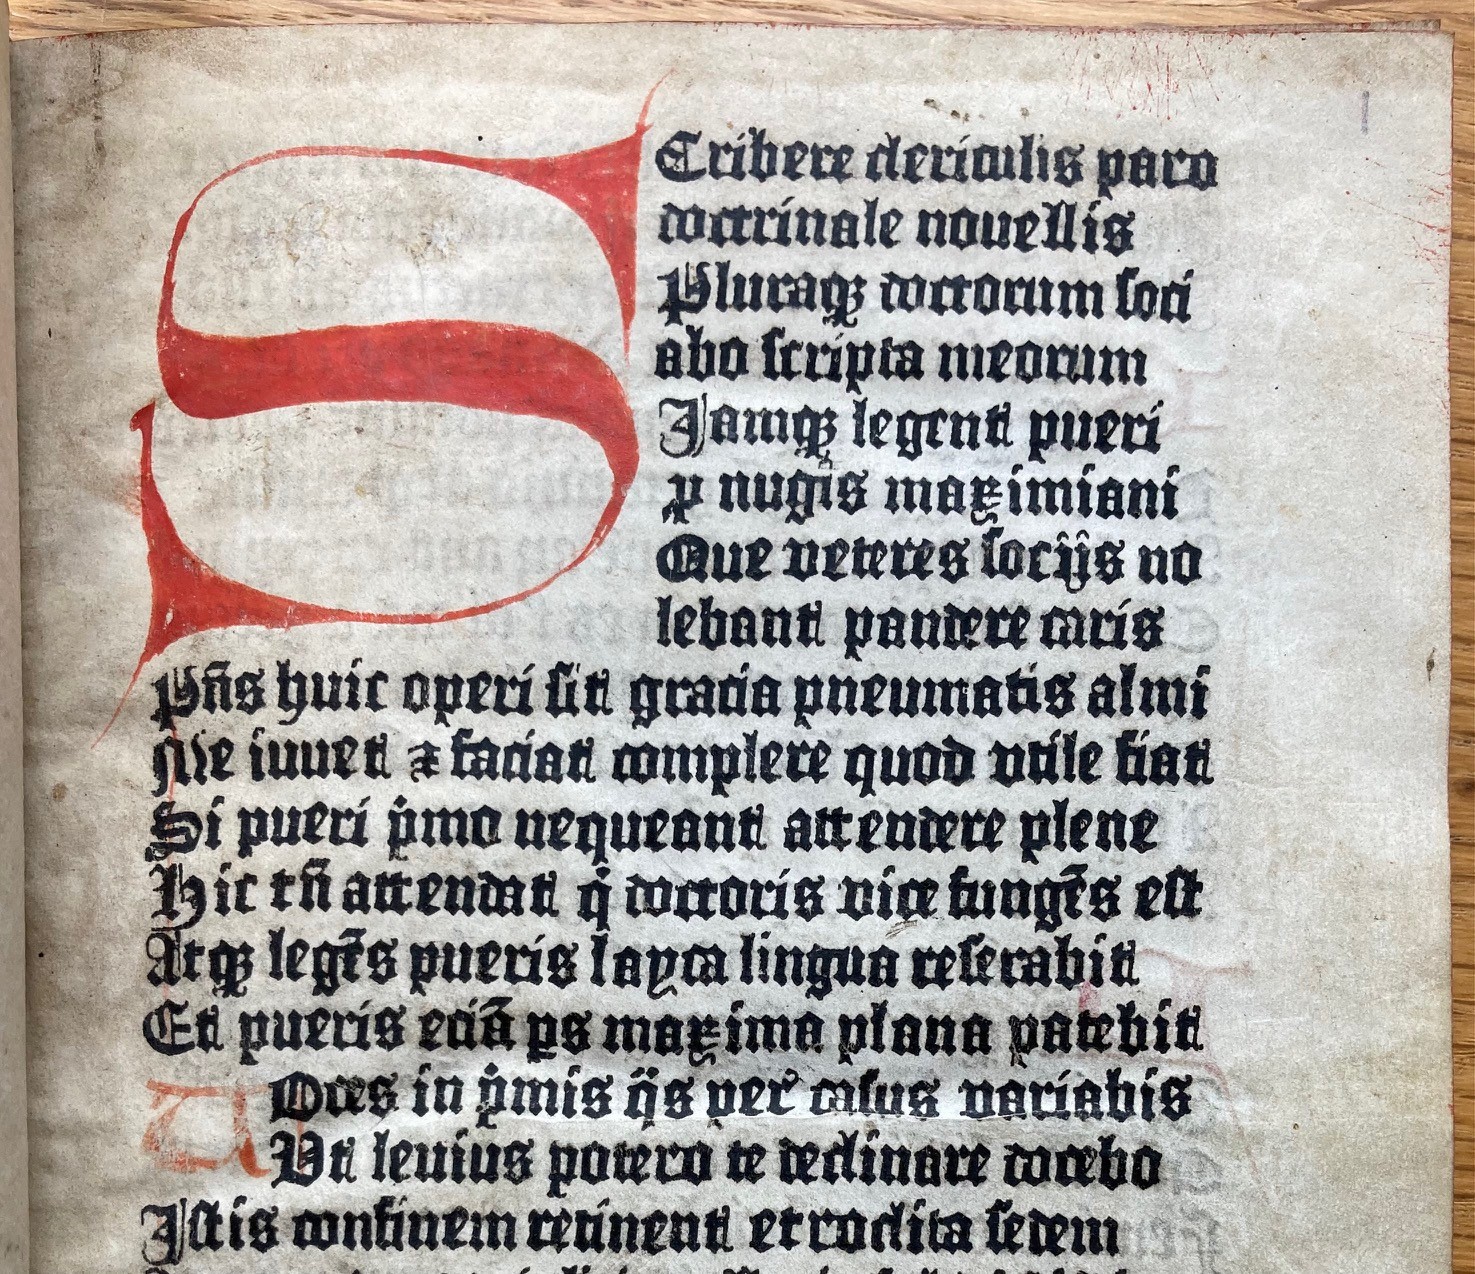 SCribere clericulis paro
doctrinale nouellis
Pluraqꝫ doctorum soci
abo scripta meorum
Jamqꝫ legent pueri
ꝓ nugis maximiani
Que veteres socijs no
lebant pandere caris
Pn̄s huic operi sit gracia pneumatis almi
Me iuuet ⁊ faciat complere quod vtile fiat
Si pueri pⁱmo nequeant attendere plene
Hic tn̄ attendat qⁱ doctoris vice fungēs est
Atqꝫ legēs pueris layca lingua reserabit
Et pueris eciā ꝑs maxima plana patebit
VOces in pⁱmis q̄s per casus variabis
Vt leuius potero te declinare docebo
Jstis confinem retinent etroclita sedem